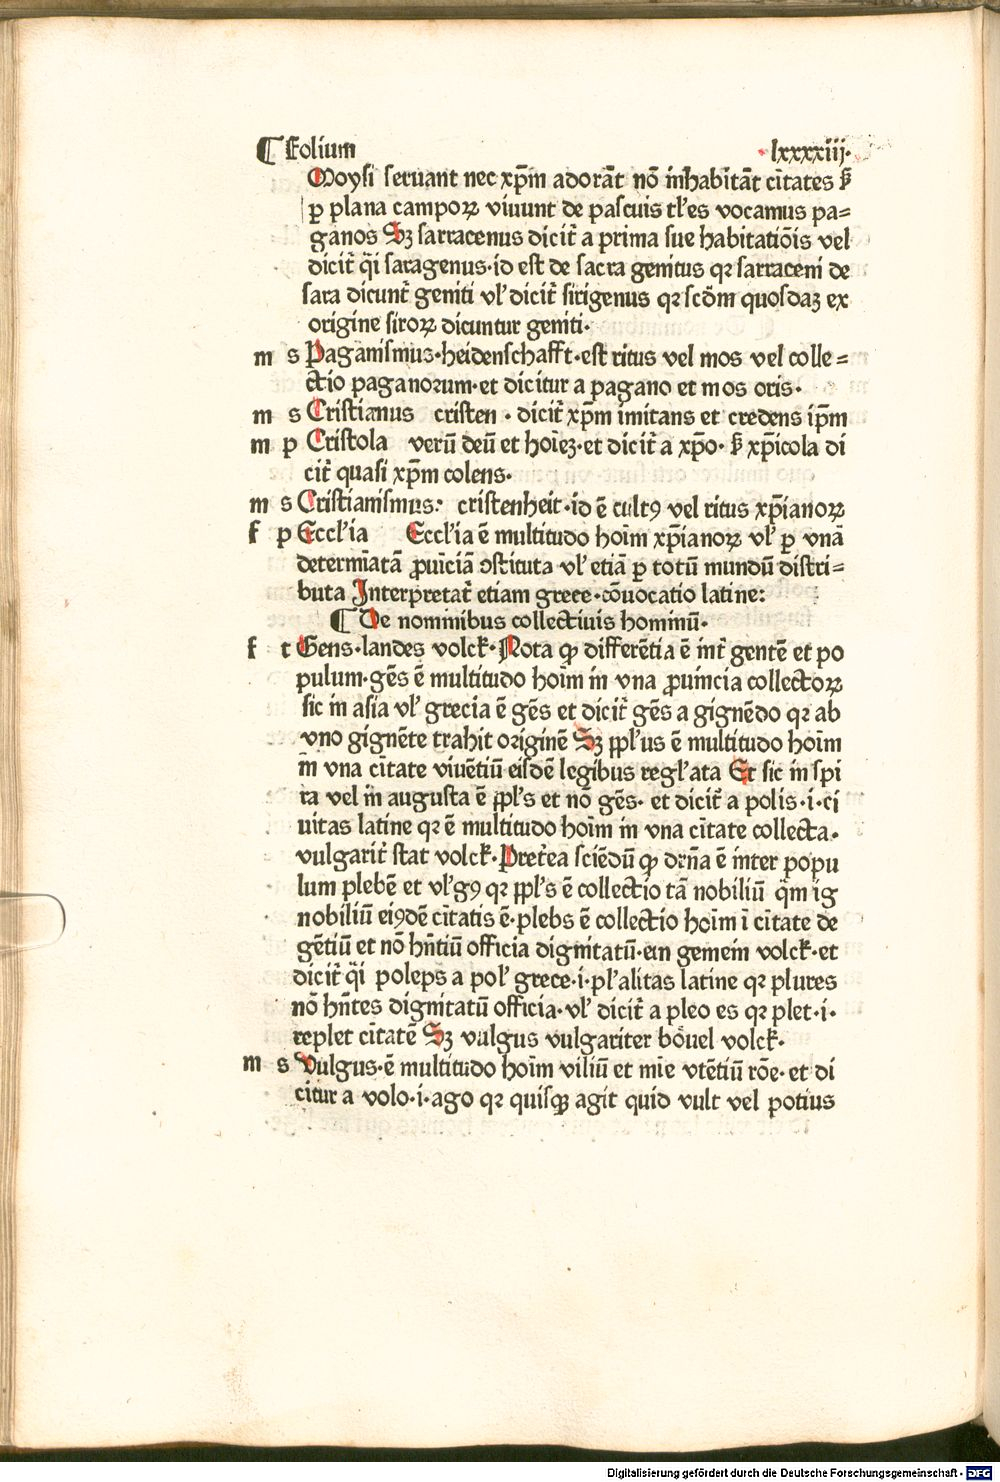 ⸿ Folium lxxxxiii·
Moysi seruant nec xp̄m adorāt nō inhabitāt ciṫates ß
ꝑ plana campoꝝ viuunt de pascuis tl'es vocamus pa⸗
ganos Sꝫ sarracenus dicit̃ a prima sue habitatiōis vel
dicit̃ q̄i saragenus·id est de sacra genitus qꝛ sarraceni de
sara dicunt̃ geniti vl' dicit̃ sirigenus qꝛ scd̄m quosdaꝫ ex
origine siroꝝ dicuntur geniti·
m s Paganismus·heidenschafft·est ritus vel mos vel colle⸗
ctio paganorum·et dicitur a pagano et mos oris·
m s Cristianus cristen · dicit̃ xp̄m imitans et credens ip̄m
m p Cristola verū deū et hoīeꝫ·et dicit̃ a xp̄o· ß xp̄icola di
cit̃ quasi xp̄m colens·
m s Cristianismus: cristenheit·id ē cultꝰ vel ritus xp̄ianoꝝ
f p Eccl'ia Eccl'ia ē multitudo hoīm xp̄ianoꝝ vl' ꝑ vnā
determīatā ꝓuīciā ꝯstituta vl' etiā ꝑ totū mundū distri⸗
buta Interpretat̃ etiam grece·cōuocatio latine:
⸿ De nominibus collectiuis hominū·
f t Gens·landes volck·Nota ꝙ differētia ē int̃ gentē et po
pulum·gēs ē multitudo hoīm in vna ꝓuincia collectoꝝ
sic in asia vl' grecia ē gēs et dicit̃ gēs a gignēdo qꝛ ab
vno gignēte trahit originē Sꝫ ppl'us ē multitudo hoīm
in vna ciṫate viuētiū eisdē legibus regl'ata Et sic in spi
ra vel in augusta ē ppl's et nō gēs· et dicit̃ a polis·i·ci
uitas latine qꝛ ē multitudo hoīm in vna ciṫate collecta·
vulgarit̃ stat volck·Pret̃ea sciēdū ꝙ dr̄na ē inter popu
lum plebē et vl'gꝰ qꝛ ppl's ē collectio tā nobiliū q̄m ig
nobiliū eiꝰdē ciṫatis ē·plebs ē collectio hoīm ī ciṫate de
gētiū et nō hn̄tiū officia dignitatū·ein gemein volck·et
dicit̃ q̄i poleps a pol' grece·i·pl'alitas latine qꝛ plures
nō hn̄tes dignitatū officia·vl' dicit̃ a pleo es qꝛ plet·i·
replet ciṫatē Sꝫ vulgus vulgariter bövel volck·
m s Vulgus·ē multitudo hoīm viliū et mīe vtētiū rōe·et di
citur a volo·i·ago qꝛ quisqꝫ agit quid vult vel potius
Digitalisierung gefördert durch die Deutsche Forschungsgemeinschaft - DFG